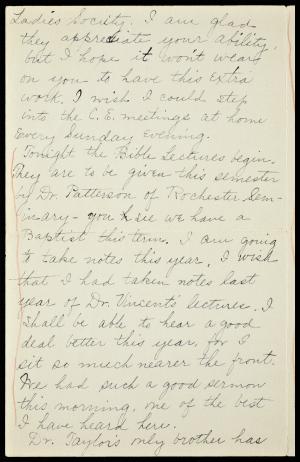 Ladies Society. I am glad
they appreciate your ability,
but I hope it won't wear
on you to have this extra
work. I wish I could step
into the C.E. meetings at home
every Sunday evening.
Tonight the Bible Lectures begin.
They are to be given this semester
by Dr. Patterson of Rochester Sem-
inary - you see we have a
Baptist this term. I am going
to take notes this year. I wish
that I had taken notes last
year of Dr. Vincent's lectures. I
shall be able to hear a good
deal better this year, for I
sit so much nearer the front.
We had such a good sermon
this morning, one of the best
I have heard here.
Dr. Taylor's only brother has